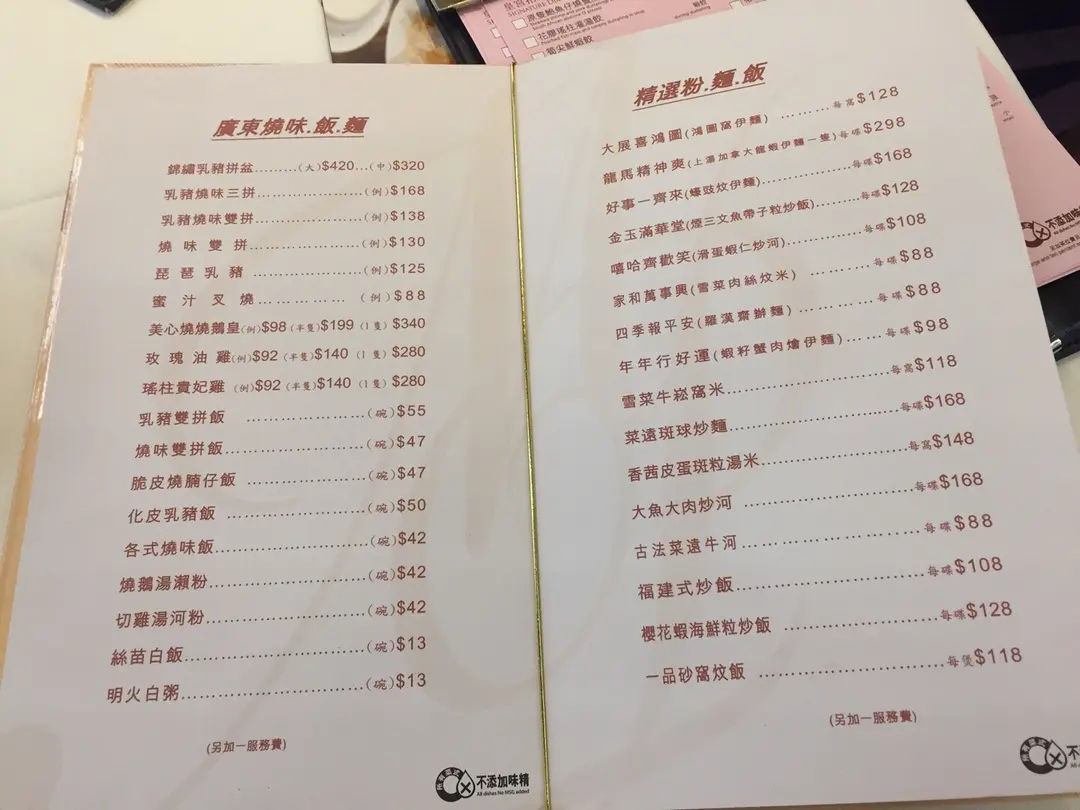 SIGNATURE
原隻鮑魚仔燒賣
花膠瑤柱灌湯餃
筍尖鮮蝦餃
廣東燒味.飯.麵
錦繡乳豬拼盆.........(大)$420...(中)$320
乳豬燒味三拼..................(例)$168
乳豬燒味雙拼..................(例)$138
燒味雙拼.....................(例)$130
琵琶乳豬.....................(例)$125
蜜汁叉燒...............(例)$88
美心燒燒鵝皇(例)$98 (半隻)$199 (1隻)$340
玫瑰油雞(例)$92 (半隻)$140 (1隻)$280
瑤柱貴妃雞 (例)$92 (半隻)$140 (1隻)$280
乳豬雙拼飯.....................(碗)$55
燒味雙拼飯.....................(碗)$47
脆皮燒腩仔飯..................(碗)$47
化皮乳豬飯.....................(碗)$50
各式燒味飯.....................(碗)$42
燒鵝湯瀨粉.....................(碗)$42
切雞湯河粉.....................(碗)$42
絲苗白飯........................(碗)$13
明火白粥........................(碗)$13
(另加一服務費)
不添加味精
All dishes No MSG added
精選粉.麵.飯
大展喜鴻圖(鴻圖窩伊麵).........每窩$128
龍馬精神爽(上湯加拿大龍蝦伊麵一隻)每碟$298
好事一齊來(蠔豉炆伊麵)...............每碟$168
金玉滿華堂(煙三文魚帶子粒炒飯).........每碟$128
嘻哈齊歡笑(滑蛋蝦仁炒河).........每碟$108
家和萬事興(雪菜肉絲炆米).........每碟$88
四季報平安(羅漢齋辦麵)............每碟$88
年年行好運(蝦籽蟹肉燴伊麵)......每碟$98
雪菜牛崧窩米........................每窩$118
菜遠斑球炒麵........................每碟$168
香茜皮蛋斑粒湯米..................每窩$148
大魚大肉炒河........................每碟$168
古法菜遠牛河........................每碟$88
福建式炒飯...........................每碟$108
櫻花蝦海鮮粒炒飯..................每碟$128
一品砂窩炆飯........................每煲$118
(另加一服務費)
不添加味